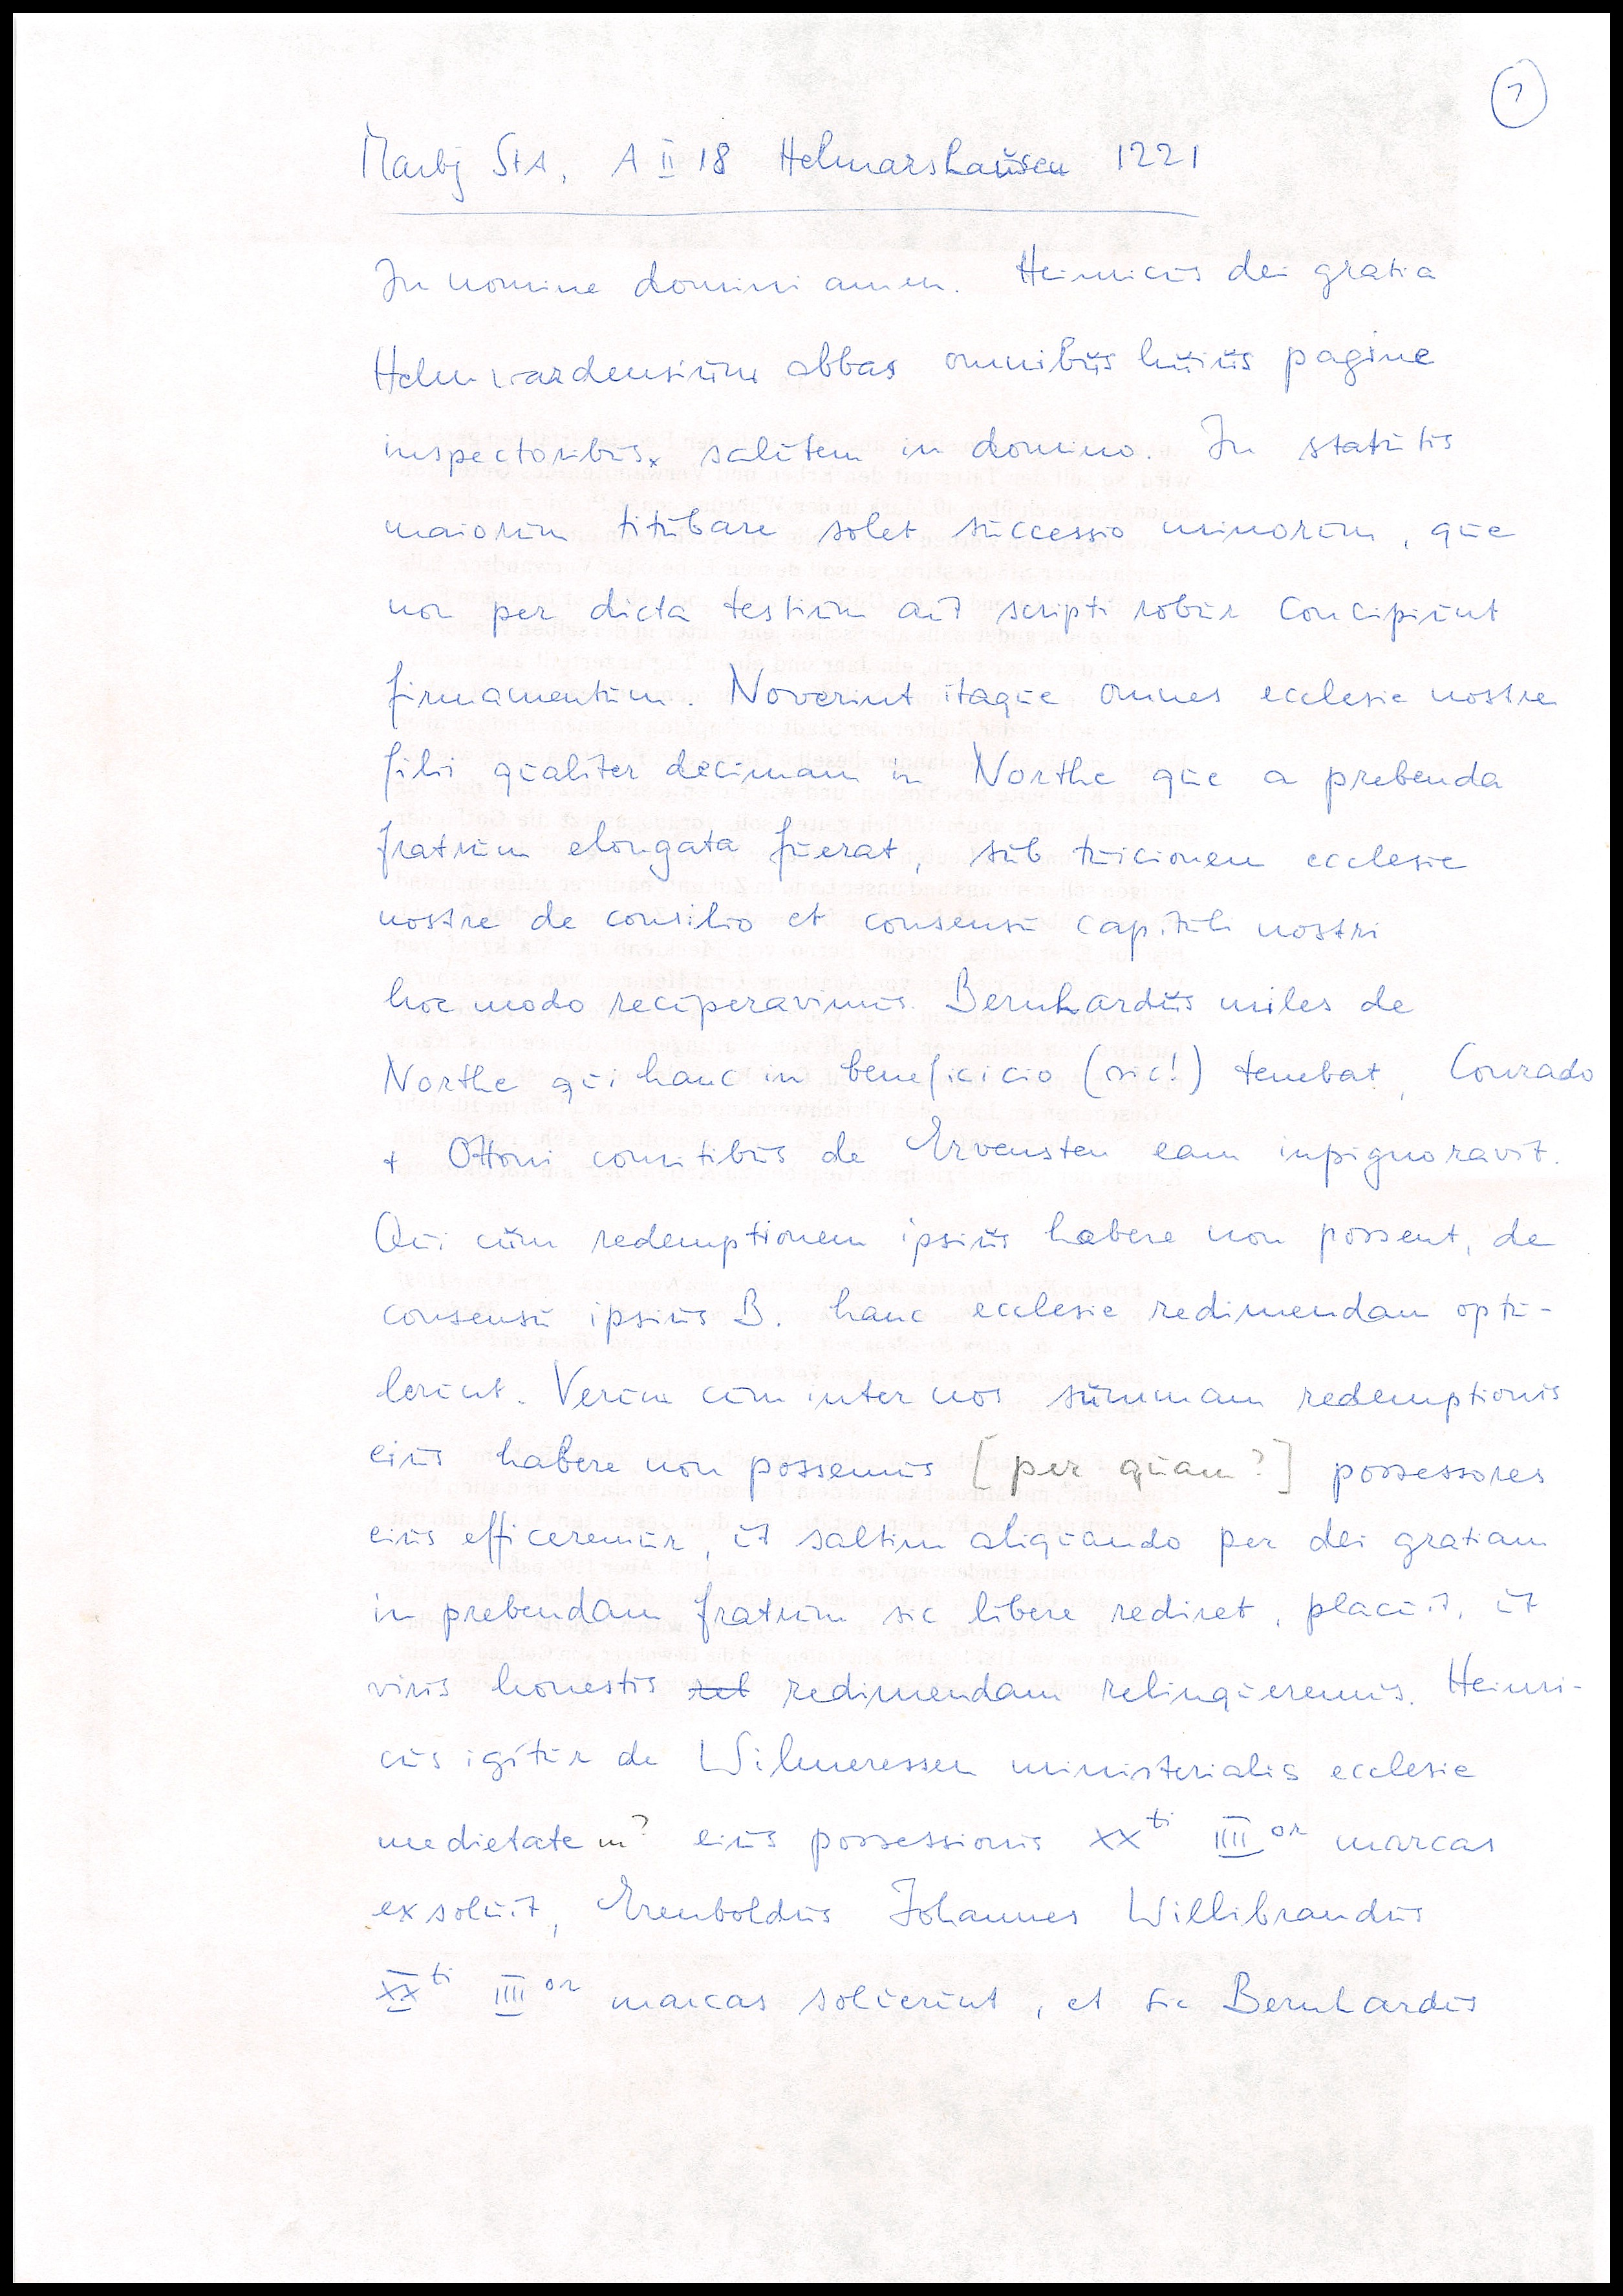 1
Marbg StA, A II 18 Helmarshausen 1221
In nomine domini amen. Heinricus dei gratia
Helmwardensium abbas omnibus huius pagine
inspectoribus salutem in domino. In statutis
maiorum titubare solet successio minorum, que
non per dicta testium aut scripti robur concipiunt
firmamentum. Noverint itaque omnes ecclesie nostre
filii qualiter decimam in Northe que a prebenda
fratrum elongata fuerat, sub tuicionem ecclesie
nostre de consilio et consensu capituli nostri
hoc modo recuperavimus. Bernhardus miles de
Northe qui hanc in beneficicio (sic!) tenebat, Conrado
+ Ottoni comitibus de Ervensten eam inpignoravit.
Qui cum redemptionem ipsius habere non possent, de
consensu ipsius B. hanc ecclesie redimendam optu-
lerunt. Verum cum inter nos summam redemptionis
eius habere non possemus [per quam?] possessores
eius efficeremur, ut saltim aliquando per dei gratiam
in prebendam fratrum sic libere rediret, placuit, ut
viris honestis rel redimendam relinqueremus. Heinri-
cus igitur de Wilmeressen ministerialis ecclesie
medietatem? eius possessionis xx ti IIII or marcas
exsoluit, Erenboldus Johannes Willibrandus
xx ti IIII or marcas soluerunt, et sic Bernhardus